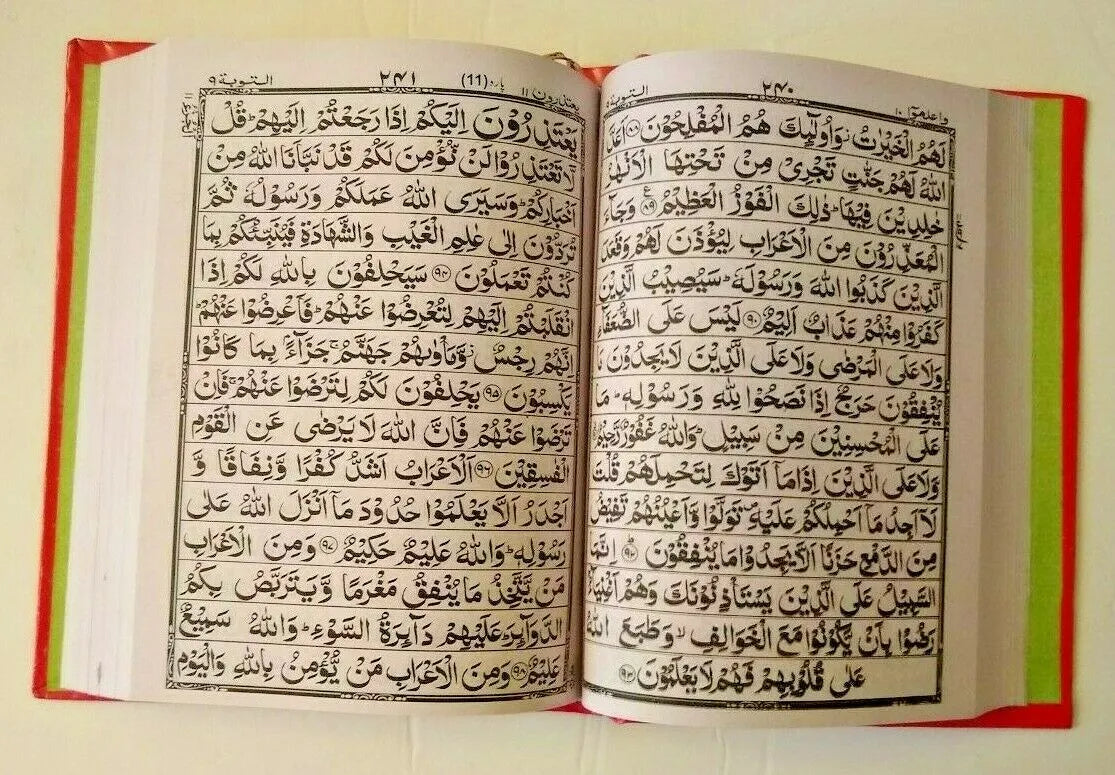 واعلموٓا ١٠
٢٤٠
التوبة ٩
لَهُمُ الْخَيْرٰتُ ز وَاُولٰٓئِكَ هُمُ الْمُفْلِحُوْنَ ﴿٨٨﴾ اَعَدَّ
اللّٰهُ لَهُمْ جَنّٰتٍ تَجْرِىْ مِنْ تَحْتِهَا الْاَنْهٰرُ
خٰلِدِيْنَ فِيْهَا ؕ ذٰلِكَ الْفَوْزُ الْعَظِيْمُ ﴿٨٩﴾ وَجَآءَ
الْمُعَذِّرُوْنَ مِنَ الْاَعْرَابِ لِيُؤْذَنَ لَهُمْ وَقَعَدَ
الَّذِيْنَ كَذَبُوا اللّٰهَ وَرَسُوْلَهٗ ؕ سَيُصِيْبُ الَّذِيْنَ
كَفَرُوْا مِنْهُمْ عَذَابٌ اَلِيْمٌ ﴿٩٠﴾ لَيْسَ عَلَى الضُّعَفَآءِ
وَلَا عَلَى الْمَرْضٰى وَلَا عَلَى الَّذِيْنَ لَا يَجِدُوْنَ مَا
يُنْفِقُوْنَ حَرَجٌ اِذَا نَصَحُوْا لِلّٰهِ وَرَسُوْلِهٖ ؕ مَا
عَلَى الْمُحْسِنِيْنَ مِنْ سَبِيْلٍ ؕ وَاللّٰهُ غَفُوْرٌ رَّحِيْمٌ
وَّلَا عَلَى الَّذِيْنَ اِذَا مَآ اَتَوْكَ لِتَحْمِلَهُمْ قُلْتَ
لَآ اَجِدُ مَآ اَحْمِلُكُمْ عَلَيْهِ تَوَلَّوْا وَّاَعْيُنُهُمْ تَفِيْضُ
مِنَ الدَّمْعِ حَزَنًا اَلَّا يَجِدُوْا مَا يُنْفِقُوْنَ ﴿٩٢﴾ اِنَّمَا
السَّبِيْلُ عَلَى الَّذِيْنَ يَسْتَاْذِنُوْنَكَ وَهُمْ اَغْنِيَآءُ
رَضُوْا بِاَنْ يَّكُوْنُوْا مَعَ الْخَوَالِفِ ۙ وَطَبَعَ اللّٰهُ
عَلٰى قُلُوْبِهِمْ فَهُمْ لَا يَعْلَمُوْنَ ﴿٩٣﴾
يعتذرون ١١
پاره (11)
٢٤١
التوبة ٩
يَعْتَذِرُوْنَ اِلَيْكُمْ اِذَا رَجَعْتُمْ اِلَيْهِمْ ؕ قُلْ
لَّا تَعْتَذِرُوْا لَنْ نُّؤْمِنَ لَكُمْ قَدْ نَبَّاَنَا اللّٰهُ مِنْ
اَخْبَارِكُمْ ؕ وَسَيَرَى اللّٰهُ عَمَلَكُمْ وَرَسُوْلُهٗ ثُمَّ
تُرَدُّوْنَ اِلٰى عٰلِمِ الْغَيْبِ وَالشَّهَادَةِ فَيُنَبِّئُكُمْ بِمَا
كُنْتُمْ تَعْمَلُوْنَ ﴿٩٤﴾ سَيَحْلِفُوْنَ بِاللّٰهِ لَكُمْ اِذَا
انْقَلَبْتُمْ اِلَيْهِمْ لِتُعْرِضُوْا عَنْهُمْ ؕ فَاَعْرِضُوْا عَنْهُمْ ؕ
اِنَّهُمْ رِجْسٌ ز وَّمَاْوٰىهُمْ جَهَنَّمُ ۚ جَزَآءًۢ بِمَا كَانُوْا
يَكْسِبُوْنَ ﴿٩٥﴾ يَحْلِفُوْنَ لَكُمْ لِتَرْضَوْا عَنْهُمْ ۚ فَاِنْ
تَرْضَوْا عَنْهُمْ فَاِنَّ اللّٰهَ لَا يَرْضٰى عَنِ الْقَوْمِ
الْفٰسِقِيْنَ ﴿٩٦﴾ اَلْاَعْرَابُ اَشَدُّ كُفْرًا وَّنِفَاقًا وَّ
اَجْدَرُ اَلَّا يَعْلَمُوْا حُدُوْدَ مَآ اَنْزَلَ اللّٰهُ عَلٰى
رَسُوْلِهٖ ؕ وَاللّٰهُ عَلِيْمٌ حَكِيْمٌ ﴿٩٧﴾ وَمِنَ الْاَعْرَابِ
مَنْ يَّتَّخِذُ مَا يُنْفِقُ مَغْرَمًا وَّيَتَرَبَّصُ بِكُمُ
الدَّوَآئِرَ ؕ عَلَيْهِمْ دَآئِرَةُ السَّوْءِ ؕ وَاللّٰهُ سَمِيْعٌ
عَلِيْمٌ ﴿٩٨﴾ وَمِنَ الْاَعْرَابِ مَنْ يُّؤْمِنُ بِاللّٰهِ وَالْيَوْمِ